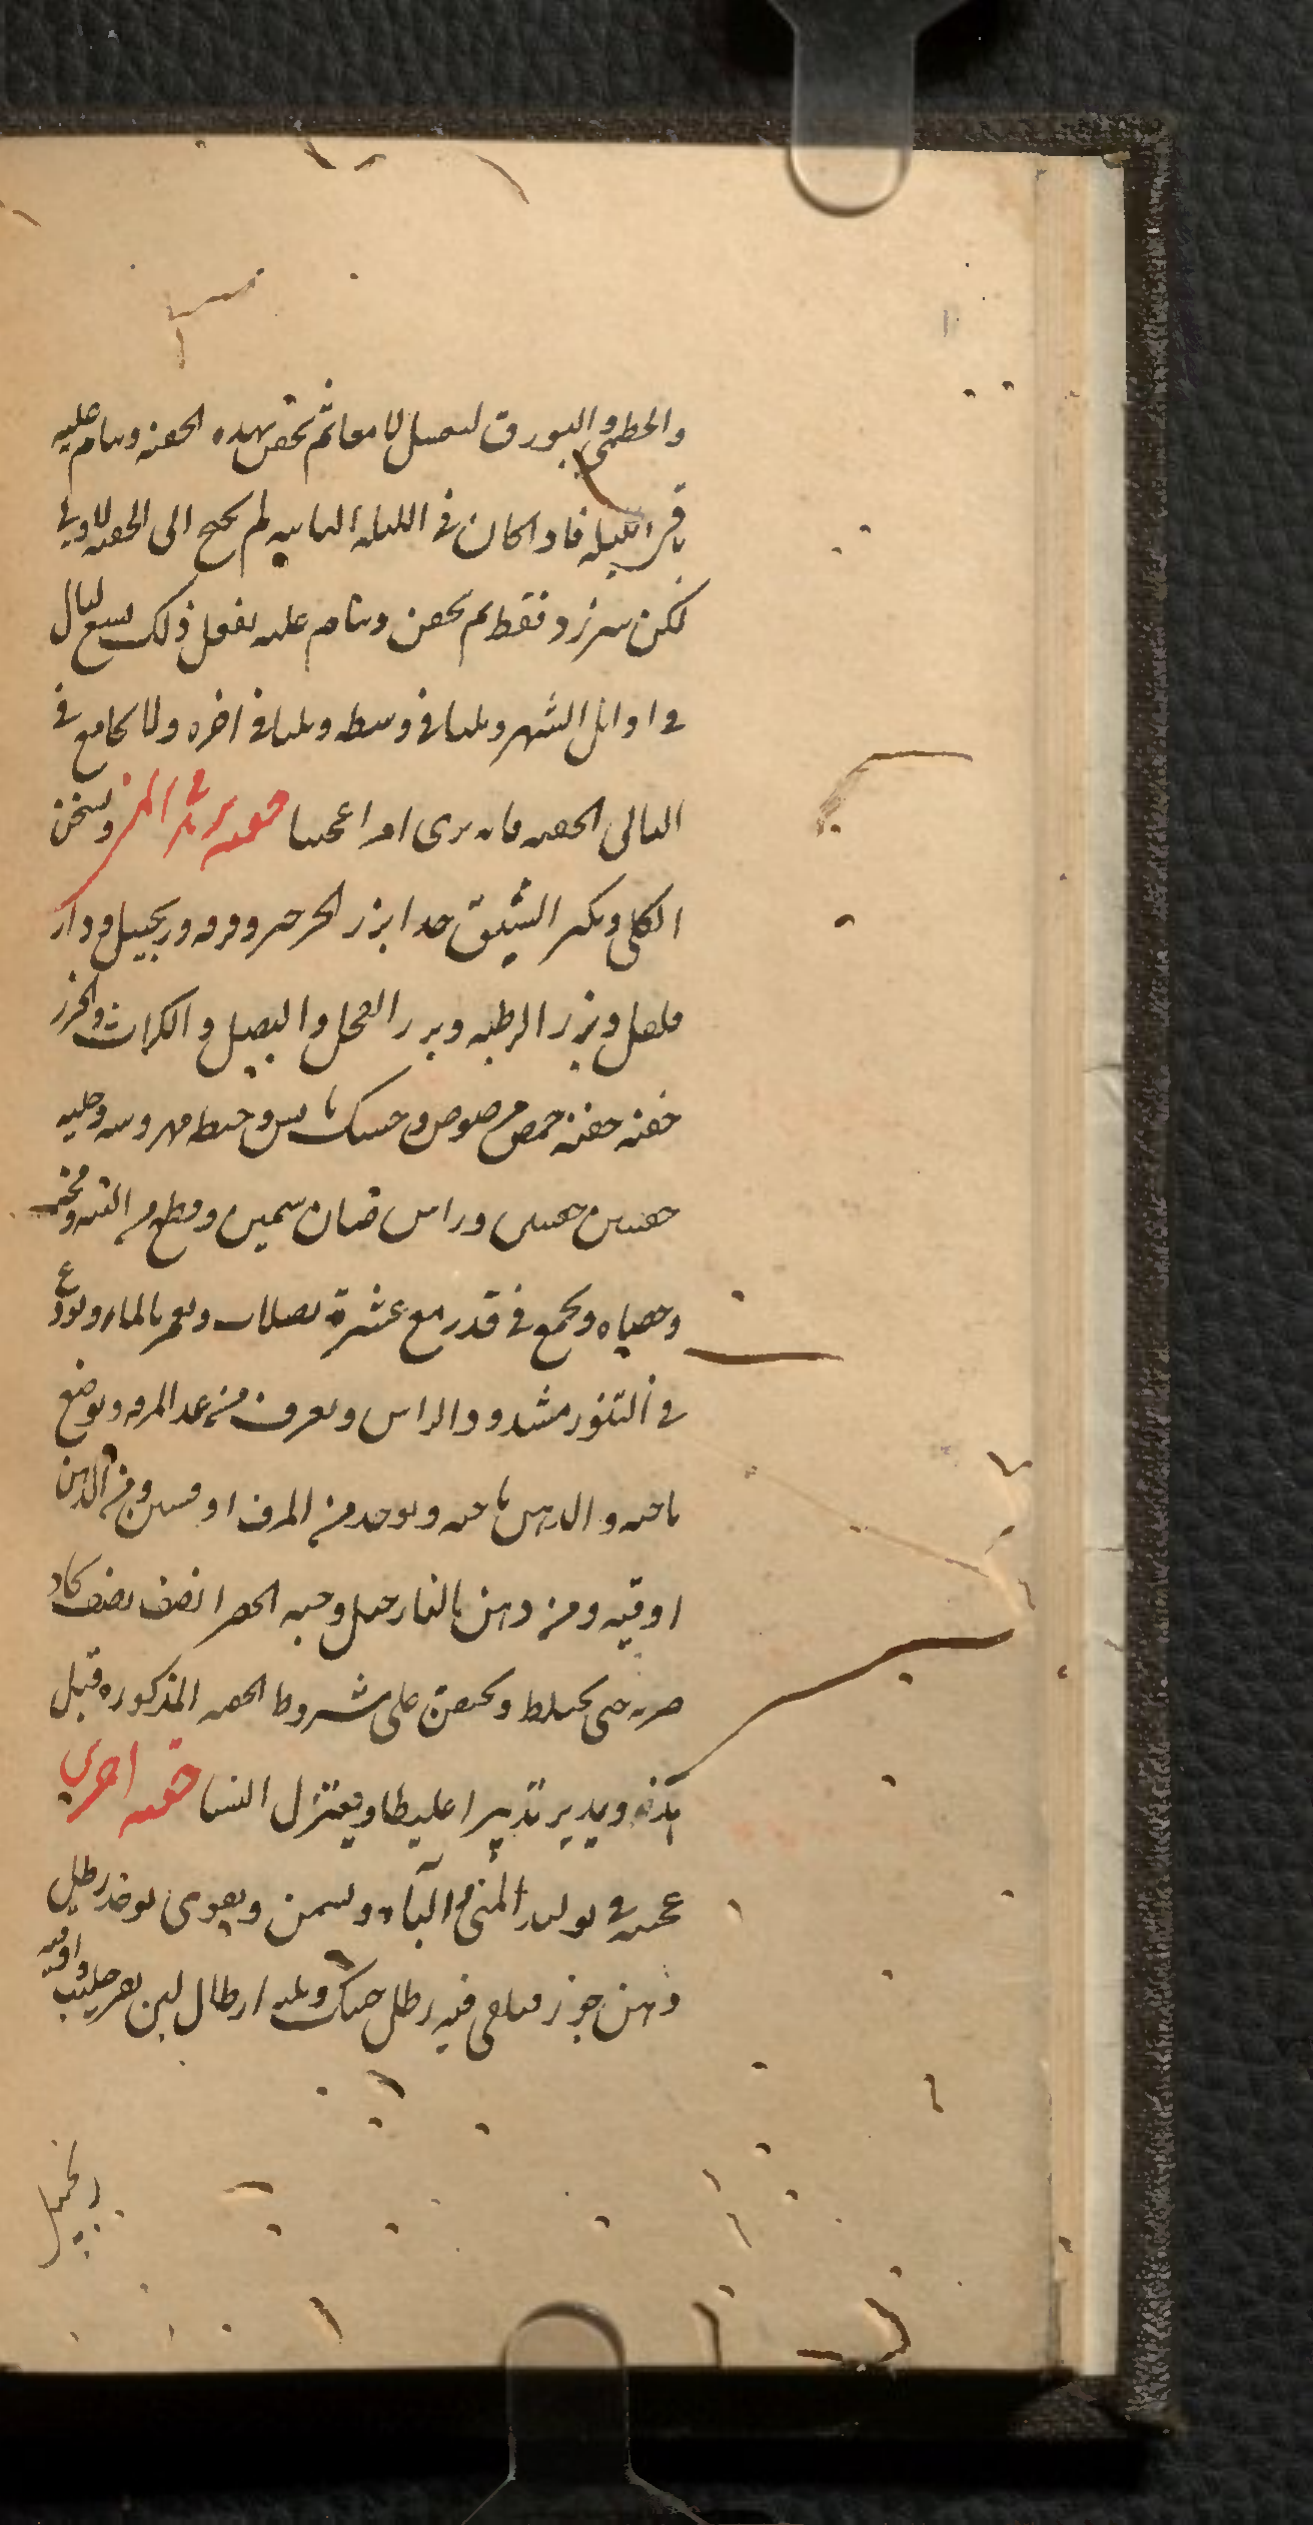 والخطمى والبورق لىغسل الامعا ثم تحقن بهده الحقنه وىنام عليه
فى الليله فاذا كان فى الليله الثانيه لم يحتج الى الحقنه الاولى
لكن ىبرزه فقط ثم يحقن وىنام عليه يفعل ذلك سبع ليال
فى اوائل الشهر وثلثا فى وسطه وثلثا فى اخره ولا يجامع فى
الليالى الحقنه فانه يرى امرا عجيبا حقنه تزيد فى المنى وىسخن
الكلى وىكثر الشبق جدا بزر الجرجير وقرفه وزنجبيل ودار
فلفل وبزر الرطبه وبزر الفجل والبصل والكراث والجزر
حفنه حفنه حمص مرضوض وحسك يابس وحنطه مهروسه وحلبه
حفنتين حفنتين وراس ضان سمين وقطع من اليته ومخه
وخصياه ويجمع فى قدر مع عشرة بصلات ويغمر بالماء ويودع
فى التنور مشدود الراس ويغرف منه عند المرقه ويوضع
ناحيه والدهن ناحيه ويوخذ من المرق اوقيتين ومن الدهن
اوقيه ومن دهن النارجيل وحبه الخضرا نصف نصف
ضربه حتى يختلط ويحتقن على شروط الحقنه المذكوره قبل
هذه ويدبر تدبيرا غليظا ويعتزل النسا حقنه اخرى
عجيبه فى توليد المنى والباه وىسمن ويقوى يوخذ رطل
دهن جوز فيلقى فيه رطل حسك وثلثه ارطال لبن بقر حليب واوقيه
زنجبيل